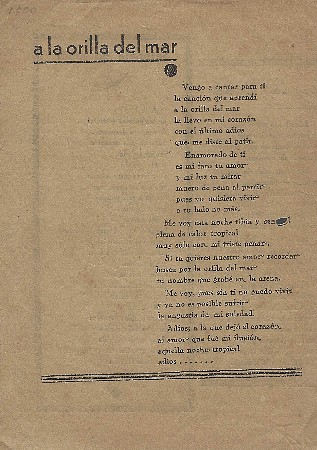 a la orilla del mar
Vengo a cantar para ti
la canción que aprendí
a la orilla del mar
la llevo en mi corazón
con el último adios
que me diste al partir.
Enamorado de ti
es mi faro tu amor
y mi luz tu mirar
muero de pena al partir
pues yo quisiera vivir
a tu lado no más.
Me voy esta noche tibia y
plena de calor tropical
muy sólo con mi triste penar,
Si tu quieres nuestro amor recordar
busca por la orilla del mar
mi nombre que grabé en la arena.
Me voy, pues sin ti no puedo vivir
y ya no es posible sufrir
la angustia de mi soledad.
Adios, a la que dejó el corazón,
al amor que fué mi ilusión,
aquella noche tropical
adios .......